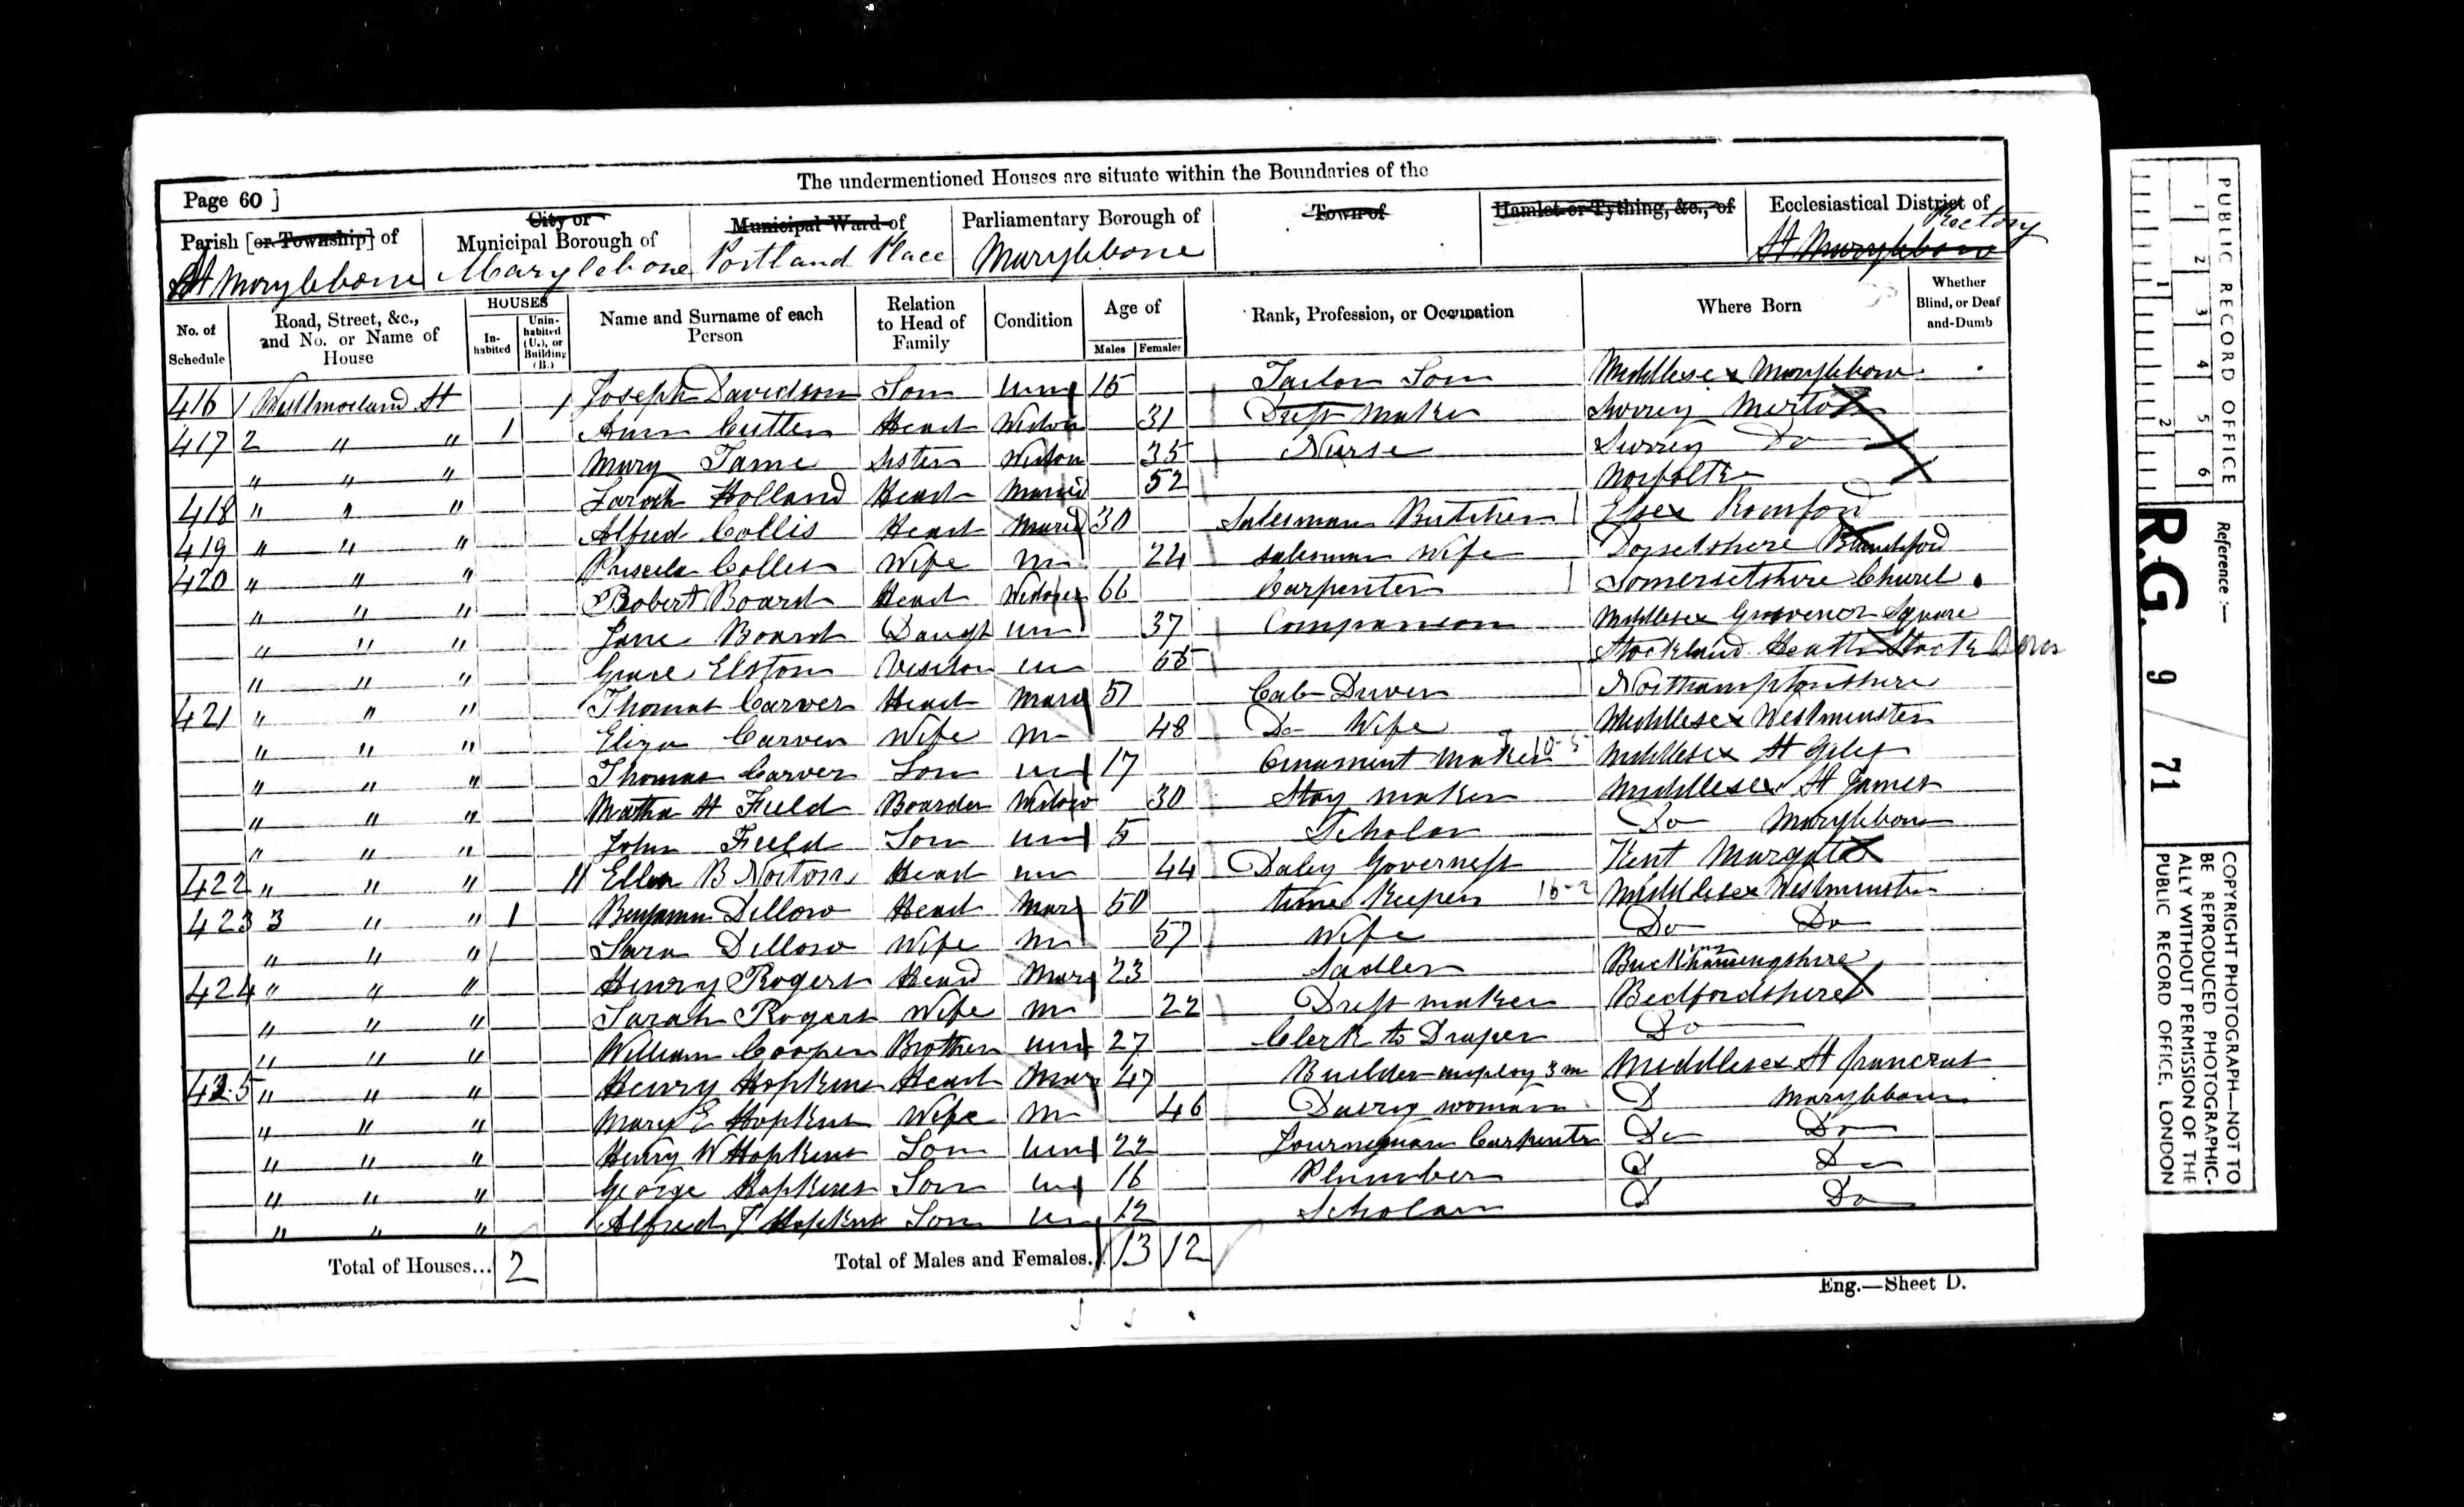 The undermentioned Houses are situate within the Boundaries of the
Page 60 ]
Parish [or Township] of
St Marylebone
City or
Municipal Borough of
Marylebone
Municipal Ward of
Portland Place
Parliamentary Borough of
Marylebone
Town of
Hamlet or Tything, &c., of
Ecclesiastical District of
Rectory
St Marylebone
No. of Schedule
Road, Street, &c., and No. or Name of House
HOUSES
In-habited
Unin-habited (U.), or Building (B.)
Name and Surname of each Person
Relation to Head of Family
Condition
Age of
Males
Females
Rank, Profession, or Occupation
Where Born
Whether Blind, or Deaf-and-Dumb
416 1 Westmoreland St Joseph Davidson Son Unm 15 Tailor Son Middlesex Marylebone
417 2 " " 1 Ann Cutler Head Widow 31 Dress Maker Surrey Merton
" " " Mary Tame Sister Widow 35 Nurse Surrey Do
418 " " " Sarah Holland Head Married 52 Norfolk
419 " " " Alfred Collis Head Mared 30 Salesman Butcher Essex Romford
420 " " " Priscela Colles Wife M 24 Salesman Wife Dorsetshire Blandford
" " " Robert Board Head Widower 66 Carpenter Somersetshire
" " " Jane Board Daugh un 37 Companion Middlesex Grovenor Square
" " " Grace Elston Visitor un Stockland Heath
421 " " " Thomas Carver Head Mard 51 Cab Driver Northamptonshire
" " " Eliza Carver Wife M 48 Do Wife Middlesex Westminster
" " " Thomas Carver Son un 17 Ornament Maker 10-5 Middlesex St Giles
" " " Martha H Field Boarder Widow 30 Stay maker Middlesex St James
" " " John Field Son un 5 Scholar Do Marylebone
422 " " " Ellen B Norton Head un 44 Daley Governess Kent Margate
423 3 " " 1 Benjamin Dellow Head Mar 50 time Keeper 16-2 Middlesex Westminster
" " " Sara Dellow Wife M 57 Wife Do Do
424 " " " Henry Rogers Head Mar 23 Sadler
" " " Sarah Rogers Wife M 22 Dress maker Bedfordshire
" " " William Cooper Brother unm 27 Clerk to Draper Do
425 " " " Henry Hopkins Head Mar 47 Builder employ 3 m Middlesex St Pancras
" " " Mary E Hopkins Wife M 46 Dairy woman D Marylebone
" " " Henry W Hopkins Son Unm 22 Journeyman Carpenter Do Do
" " " George Hopkins Son un 16 Plumber D Do
" " " Alfred T Hopkins Son un 12 Scholar D Do
Total of Houses... 2
Total of Males and Females... 13 12
Eng.—Sheet D.
PUBLIC RECORD OFFICE
1 2 3 4 5 6
1 2
Reference :—
R.G. 9 / 71
COPYRIGHT PHOTOGRAPH—NOT TO
BE REPRODUCED PHOTOGRAPHIC-
ALLY WITHOUT PERMISSION OF THE
PUBLIC RECORD OFFICE, LONDON